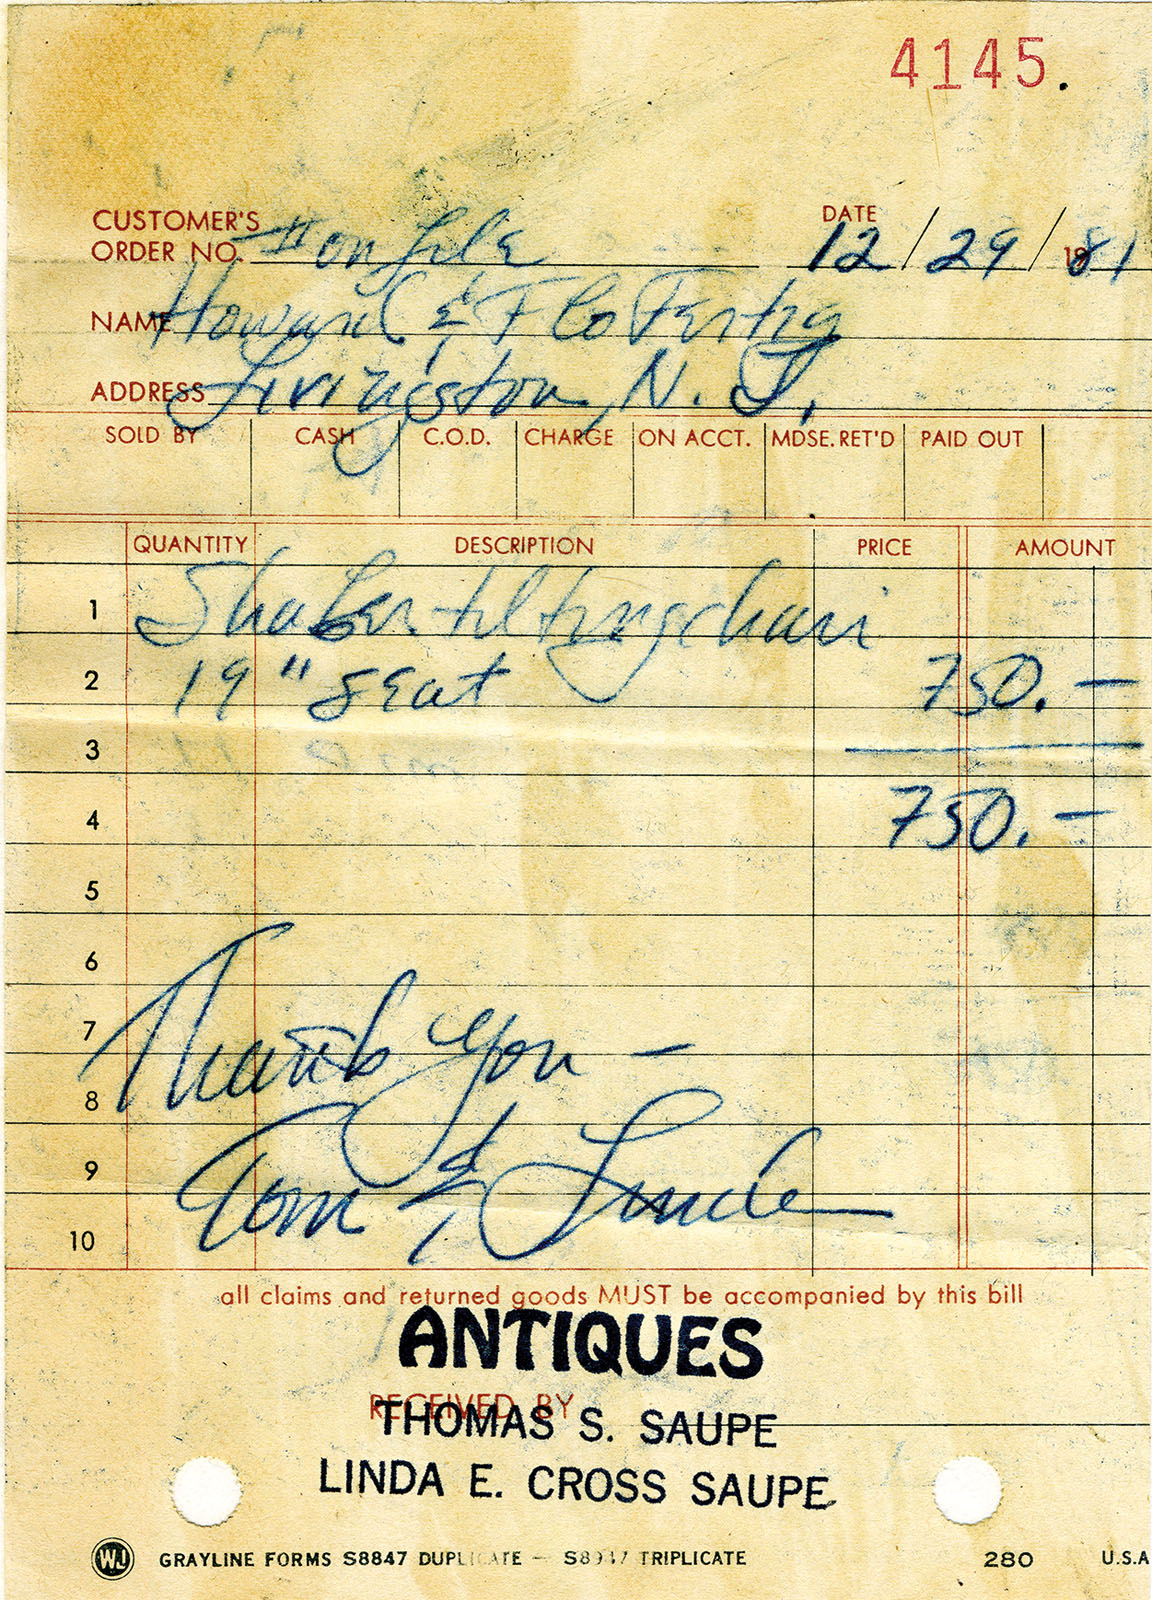 4145.
CUSTOMER'S
ORDER NO. #on file DATE 12/29/1981
NAME Howard & Flo Fertig
ADDRESS Livingston, N.J.
SOLD BY CASH C.O.D. CHARGE ON ACCT. MDSE. RET'D PAID OUT
QUANTITY DESCRIPTION PRICE AMOUNT
1 Shaker tilting chair
2 19" seat 750.—
3
4 750.—
5
6
7 Thank You —
8
9 Tom & Linda
10
all claims and returned goods MUST be accompanied by this bill
ANTIQUES
RECEIVED BY
THOMAS S. SAUPE
LINDA E. CROSS SAUPE
WJ GRAYLINE FORMS S8847 DUPLICATE — S8947 TRIPLICATE 280 U.S.A